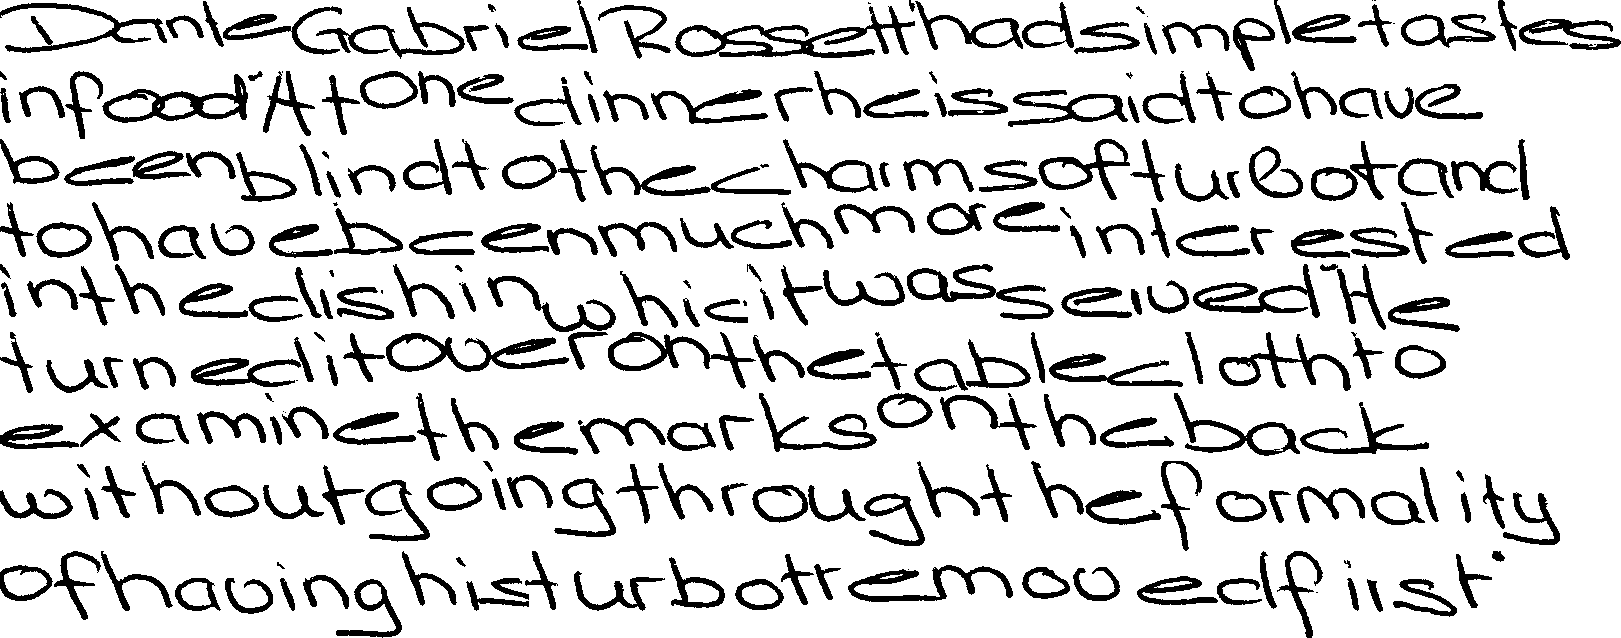 Dante Gabriel Rossetti had simple tastes
in food. At one dinner he is said to have
been blind to the charms of turbot and
to have been much more interested
in the dish in whic it was served. He
turned it over on the tablecloth to
examine the marks on the back
without going through the formality
of having his turbot removed first.